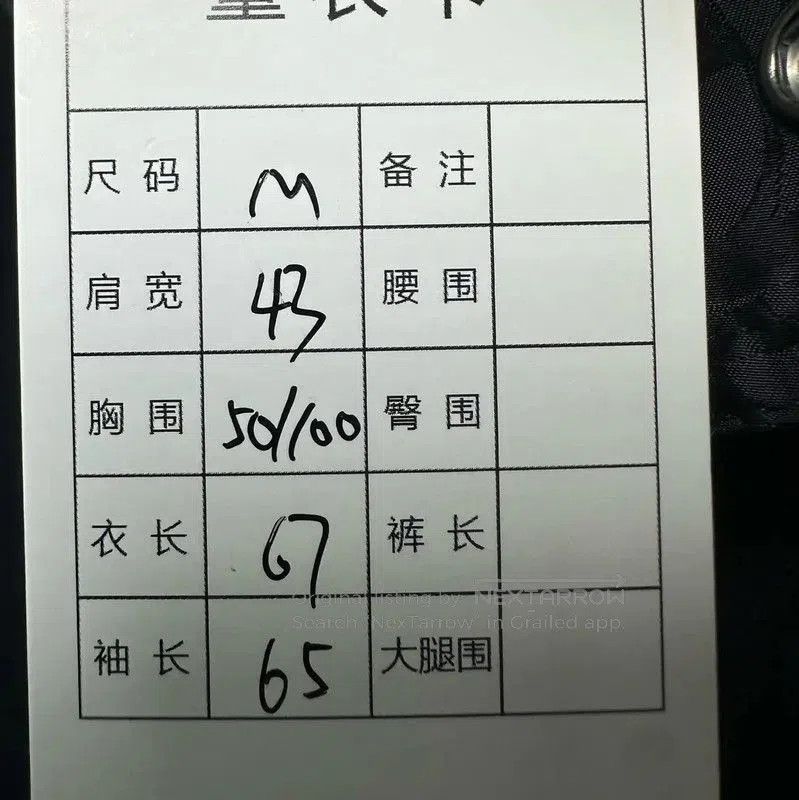 量衣卡
尺码 M 备注
肩宽 43 腰围
胸围 50/100 臀围
衣长 67 裤长
Original listing by NEXTARROW
Search "NexTarrow" in Grailed app.
袖长 65 大腿围